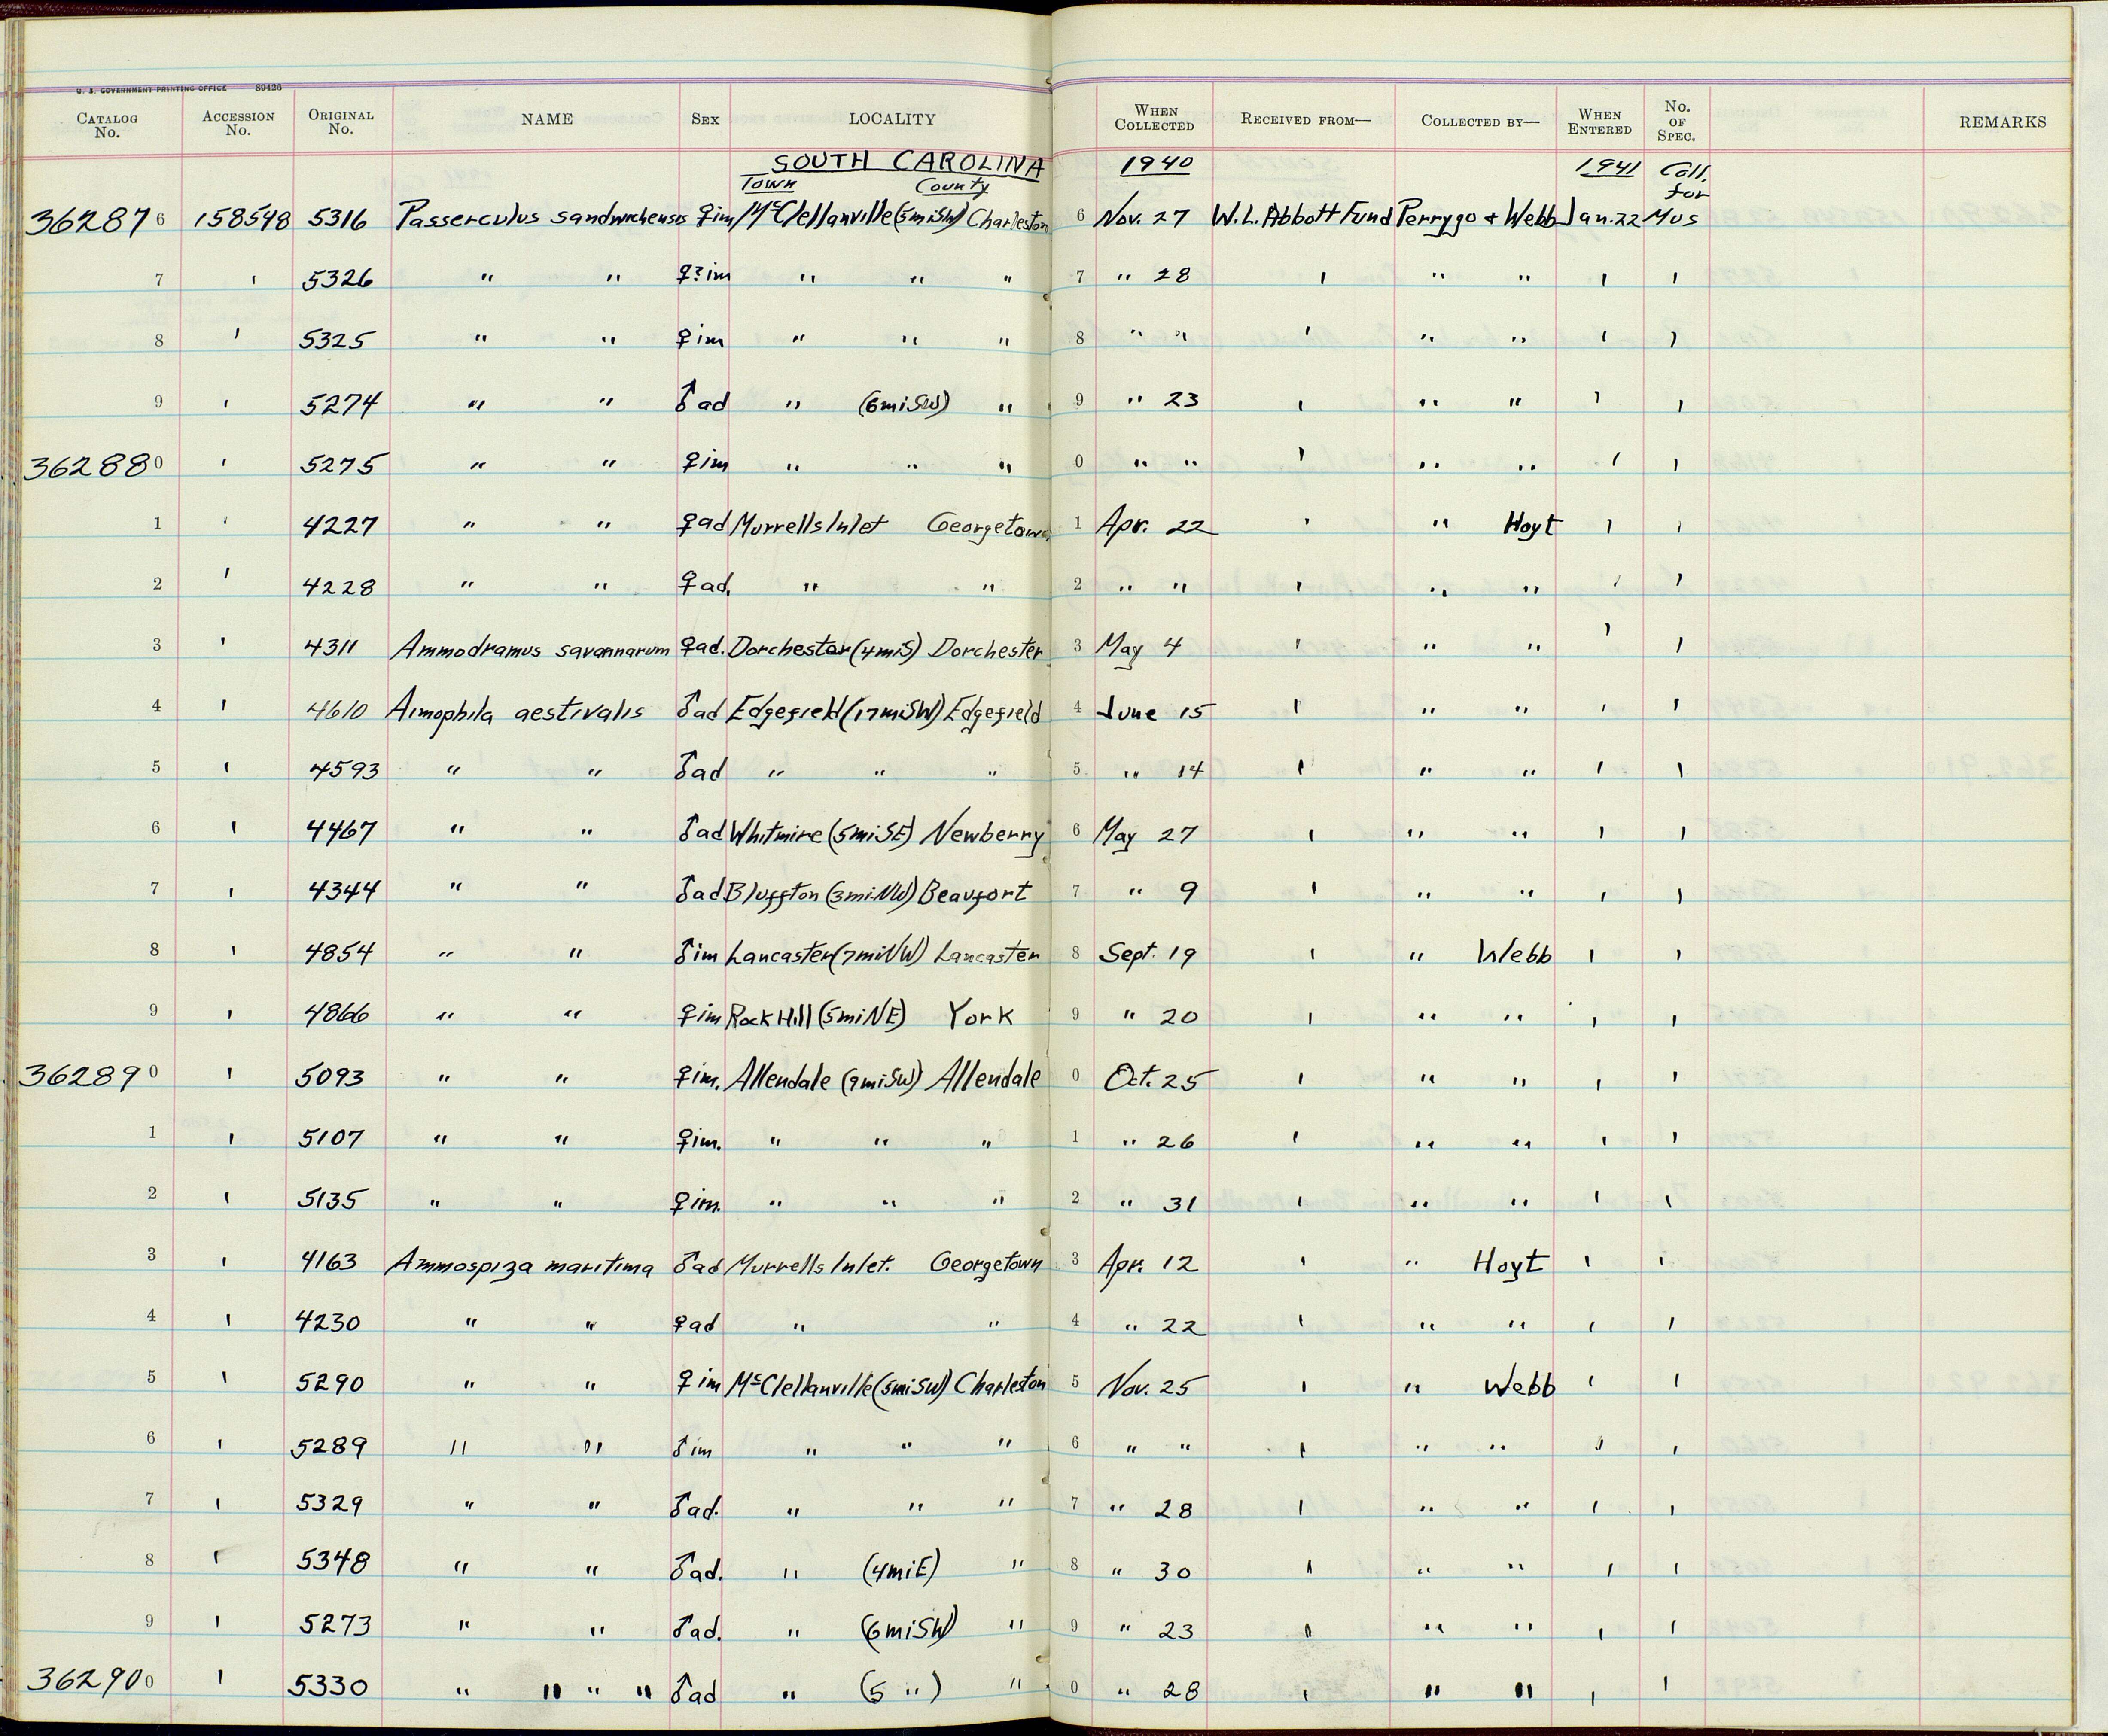 U. S. GOVERNMENT PRINTING OFFICE 89426
CATALOG No. ACCESSION No. ORIGINAL No. NAME SEX LOCALITY WHEN COLLECTED RECEIVED FROM— COLLECTED BY— WHEN ENTERED No. OF SPEC. REMARKS
SOUTH CAROLINA 1940 1941 Coll.
Town County for
362876 158548 5316 Passerculus sandwichensis ♀im McClellanville (5miSW) Charleston 6 Nov. 27 W.L. Abbott Fund Perrygo & Webb Jan. 22 Mus
7 " 5326 " " ♀?im " " " 7 " 28 " " " " "
8 " 5325 " " ♀im " " " 8 " " " " " " "
9 " 5274 " " ♂ad " (6miSW) " 9 " 23 " " " " "
362880 " 5275 " " ♀im " " " 0 " " " " " " "
1 " 4227 " " ♀ad Murrells Inlet Georgetown 1 Apr. 22 " " Hoyt " "
2 " 4228 " " ♀ad. " " 2 " " " " " " "
3 " 4311 Ammodramus savannarum ♀ad. Dorchester (4miS) Dorchester 3 May 4 " " " " "
4 " 4610 Aimophila aestivalis ♂ad Edgefield (17miSW) Edgefield 4 June 15 " " " " "
5 " 4593 " " ♂ad " " " 5 " 14 " " " " "
6 " 4467 " " ♂ad Whitmire (5miSE) Newberry 6 May 27 " " " " "
7 " 4344 " " ♂ad Bluffton (3miNW) Beaufort 7 " 9 " " " " "
8 " 4854 " " ♂im Lancaster (7miNW) Lancaster 8 Sept. 19 " " Webb " "
9 " 4866 " " ♀im Rock Hill (5miNE) York 9 " 20 " " " " "
362890 " 5093 " " ♀im. Allendale (9miSW) Allendale 0 Oct. 25 " " " " "
1 " 5107 " " ♀im. " " " 1 " 26 " " " " "
2 " 5135 " " ♀im. " " " 2 " 31 " " " " "
3 " 4163 Ammospiza maritima ♂ad Murrells Inlet. Georgetown 3 Apr. 12 " " Hoyt " "
4 " 4230 " " ♀ad " " 4 " 22 " " " " "
5 " 5290 " " ♀im McClellanville (5miSW) Charleston 5 Nov. 25 " " Webb " "
6 " 5289 " " ♂im " " " 6 " " " " " " "
7 " 5329 " " ♂ad. " " " 7 " 28 " " " " "
8 " 5348 " " ♂ad. " (4miE) " 8 " 30 " " " " "
9 " 5273 " " ♂ad. " (6miSW) " 9 " 23 " " " " "
362900 " 5330 " " " " ♂ad " (5 ") " 0 " 28 " " " " "